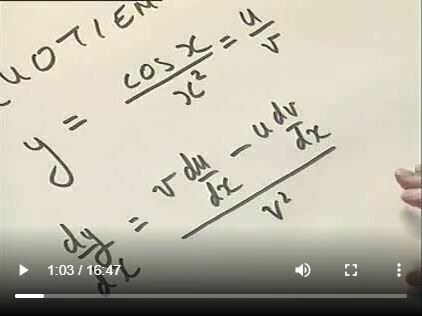 QUOTIEN
y = cos x / x² = u / v
dy/dx = (v du/dx - u dv/dx) / v²
1:03 / 16:47